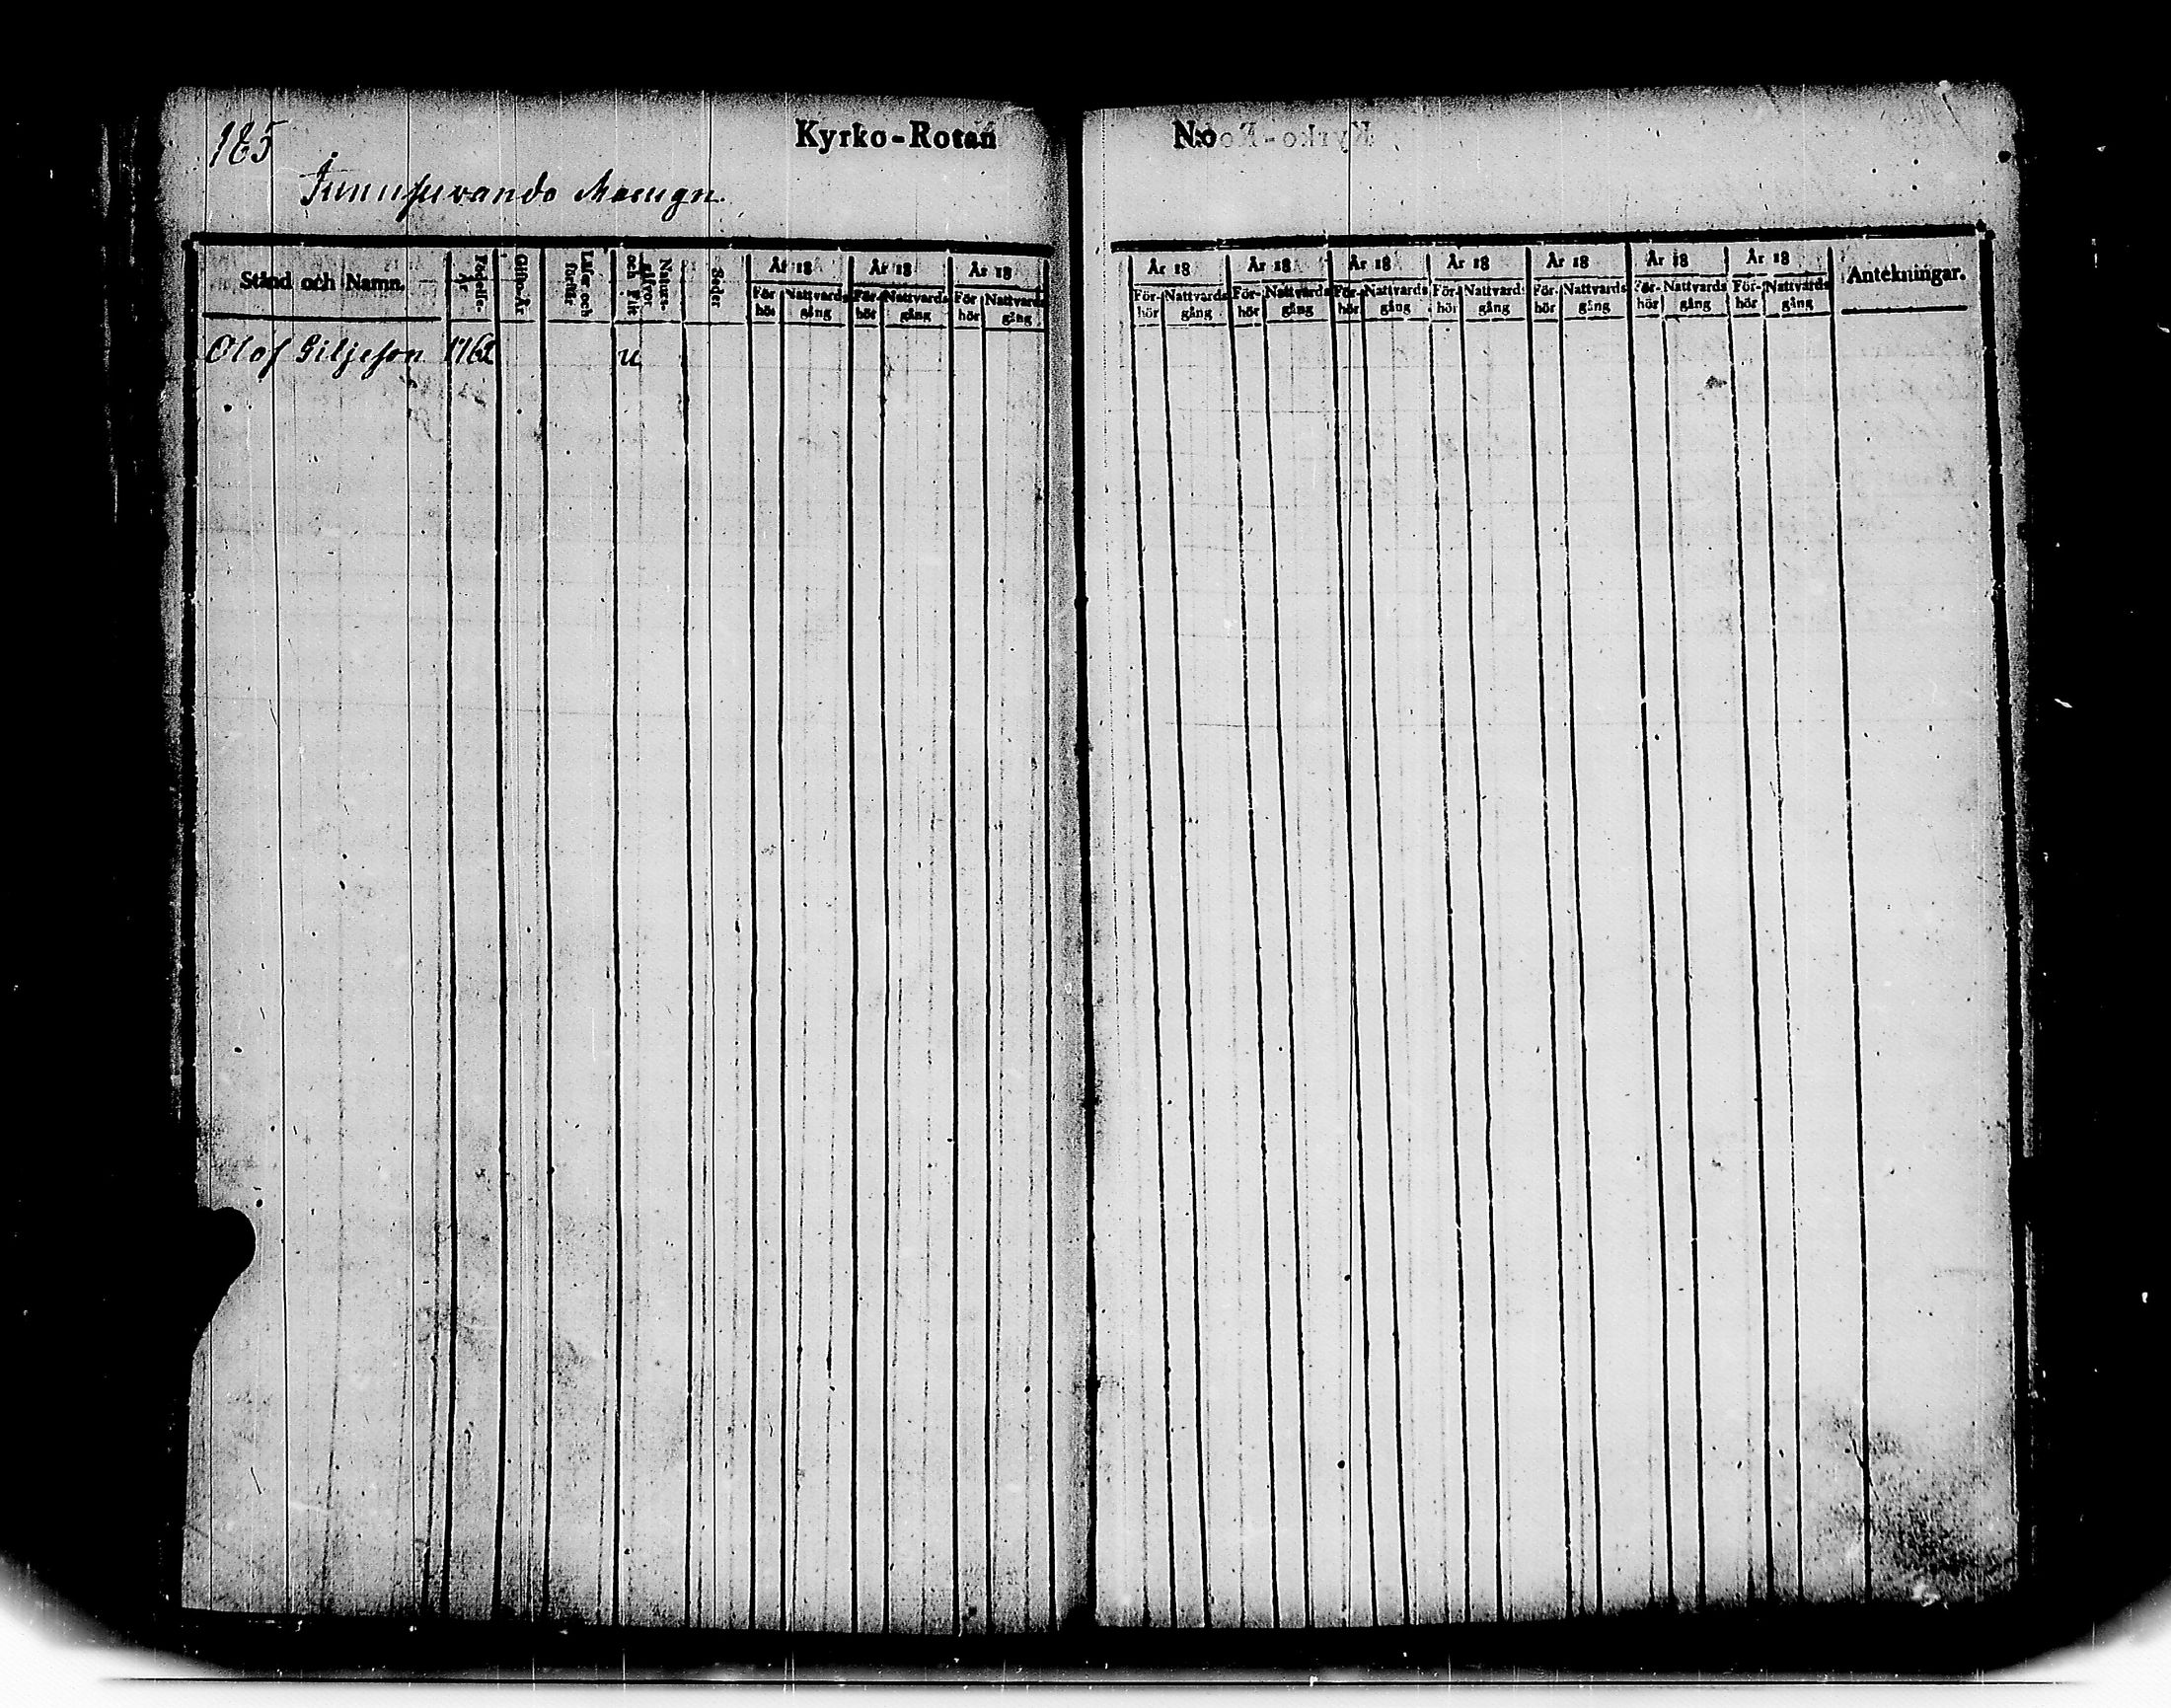 185 Kyrko-Rotan N:o
Junusuvando Masugn.
Stånd och Namn. Födelse-År Gifto-År Läser och förstår Naturs-gåfvor och Flit Seder År 18 År 18 År 18 År 18 År 18 År 18 År 18 År 18 År 18 År 18 Antekningar.
För-hör Nattvards gång För-hör Nattvards gång För-hör Nattvards gång För-hör Nattvards gång För-hör Nattvards gång För-hör Nattvards gång För-hör Nattvards gång För-hör Nattvards gång För-hör Nattvards gång För-hör Nattvards gång
Olof Giljeson 1762 u